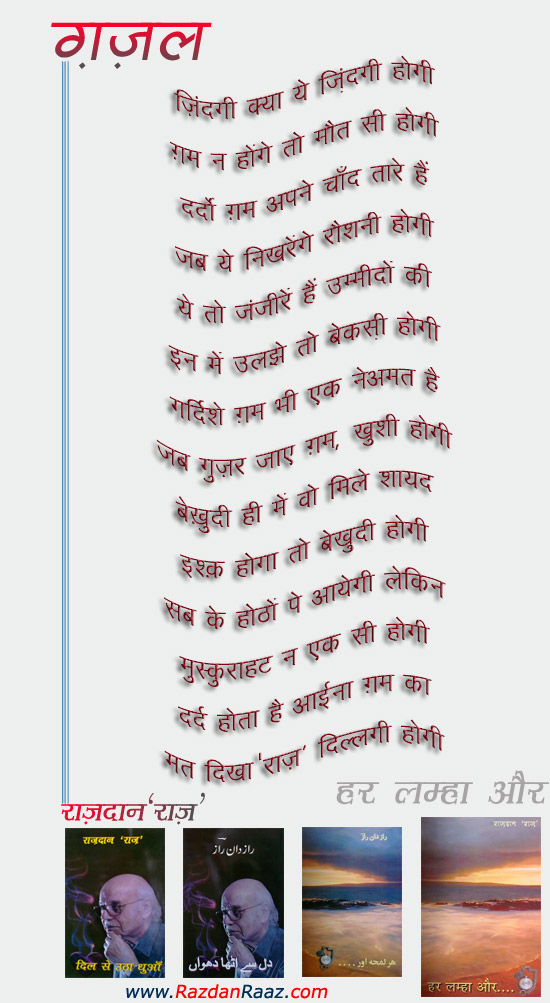 ग़ज़ल
ज़िंदगी क्या ये ज़िंदगी होगी
ग़म न होंगे तो मौत सी होगी
दर्दो ग़म अपने चाँद तारे हैं
जब ये निखरेंगे रौशनी होगी
ये तो जंजीरें हैं उम्मीदों की
इन में उलझे तो बेकसी होगी
गर्दिशे ग़म भी एक नेअमत है
जब गुज़र जाए ग़म, खुशी होगी
बेख़ुदी ही में वो मिले शायद
इश्क़ होगा तो बेखुदी होगी
सब के होठों पे आयेगी लेकिन
मुस्कुराहट न एक सी होगी
दर्द होता है आईना ग़म का
मत दिखा 'राज़' दिल्लगी होगी
हर लम्हा और
राज़दान 'राज़'
राज़दान 'राज़'
दिल से उठा धुआँ
راز دان راز
دل سے اٹھا دھواں
راز دان راز
ہر لمحہ اور ....
राज़दान 'राज़'
हर लम्हा और....
www.RazdanRaaz.com